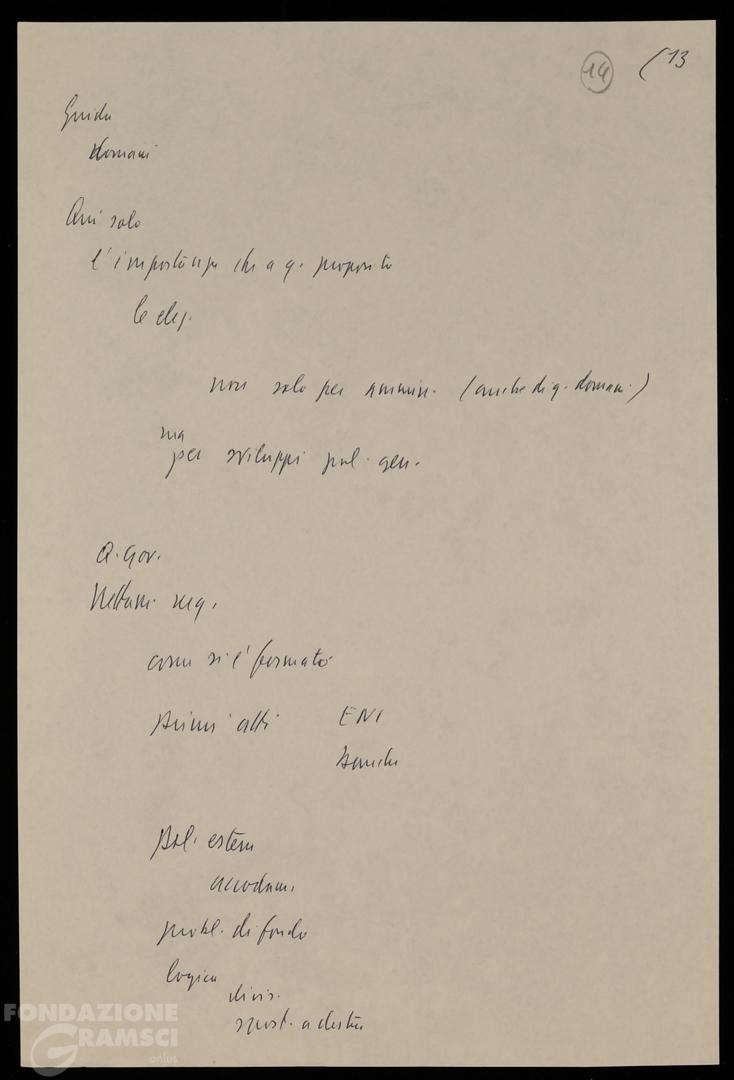 14 (13
Guida
domani
Qui solo
l'importanza che a q. proposito
le elez.
non solo per ammin. (anche di q. domani)
ma
per sviluppi pol. gen.
Q. Gov.
Nettam. neg.
come si è formato
primi atti ENI
Banche
Pol. estera
accodam.
probl. di fondo
logica
divis.
spost. a destra
FONDAZIONE
GRAMSCI
onlus